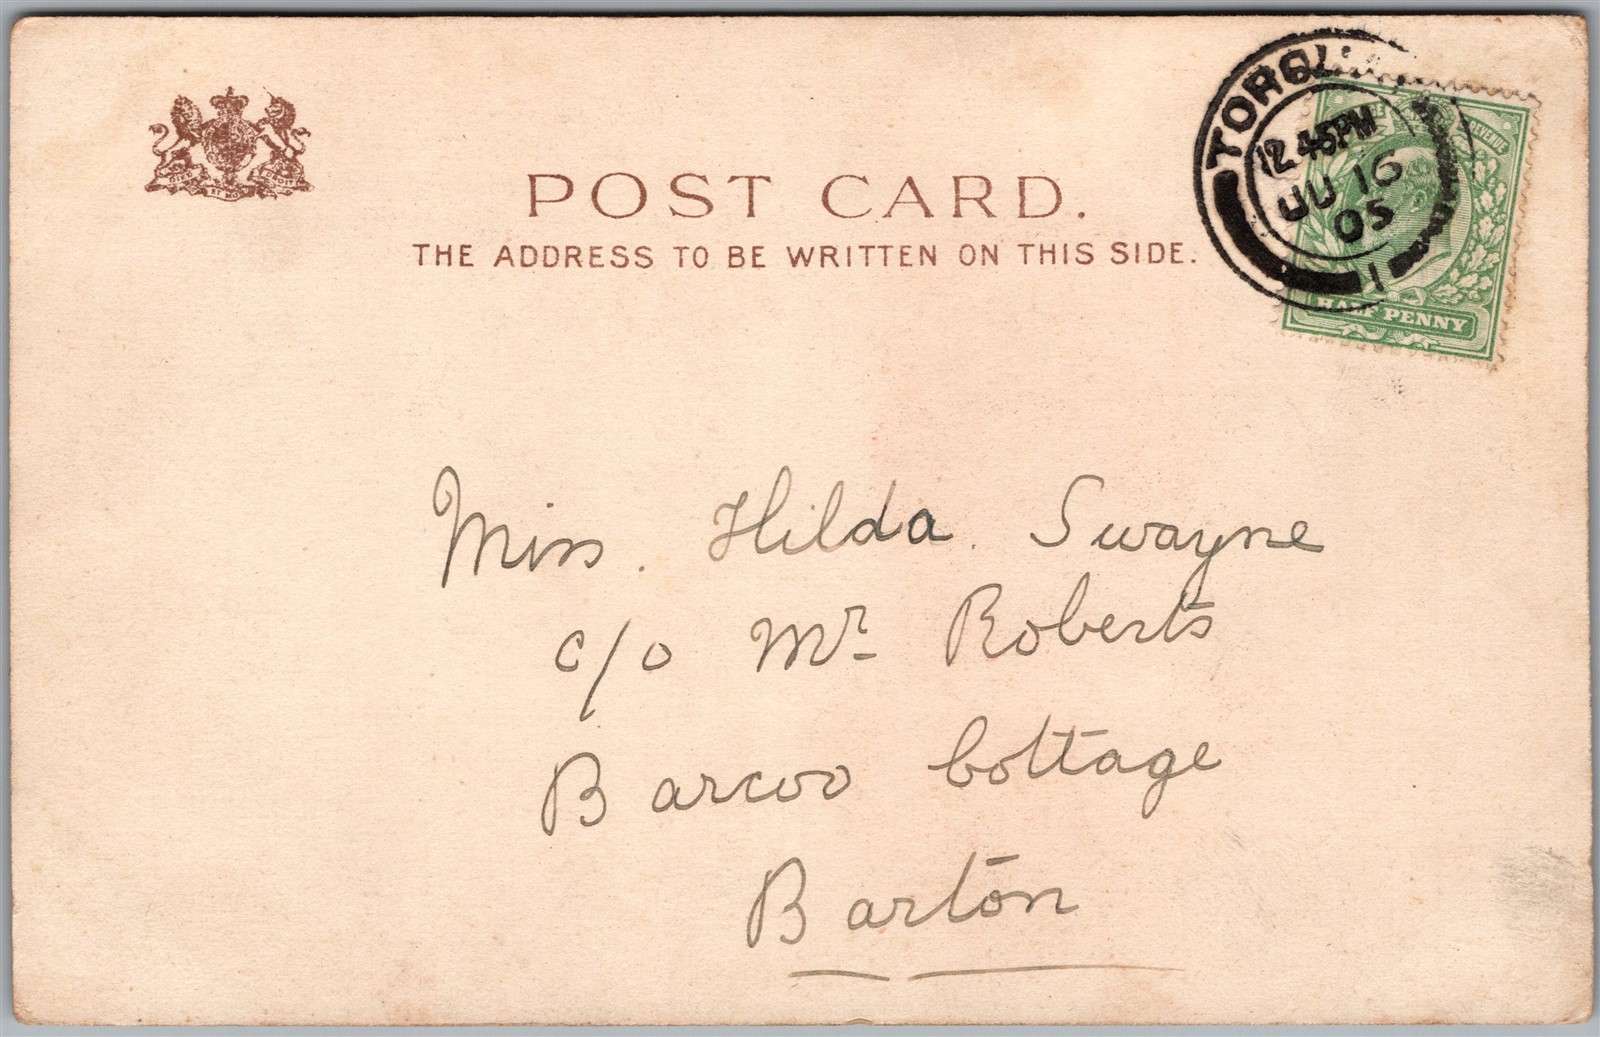 POST CARD.
THE ADDRESS TO BE WRITTEN ON THIS SIDE.
TORQU
12.45PM
JU 16
05
1
REVENUE
HALF PENNY
Miss. Hilda. Swayne
c/o Mr Roberts
Barcoo Cottage
Barton